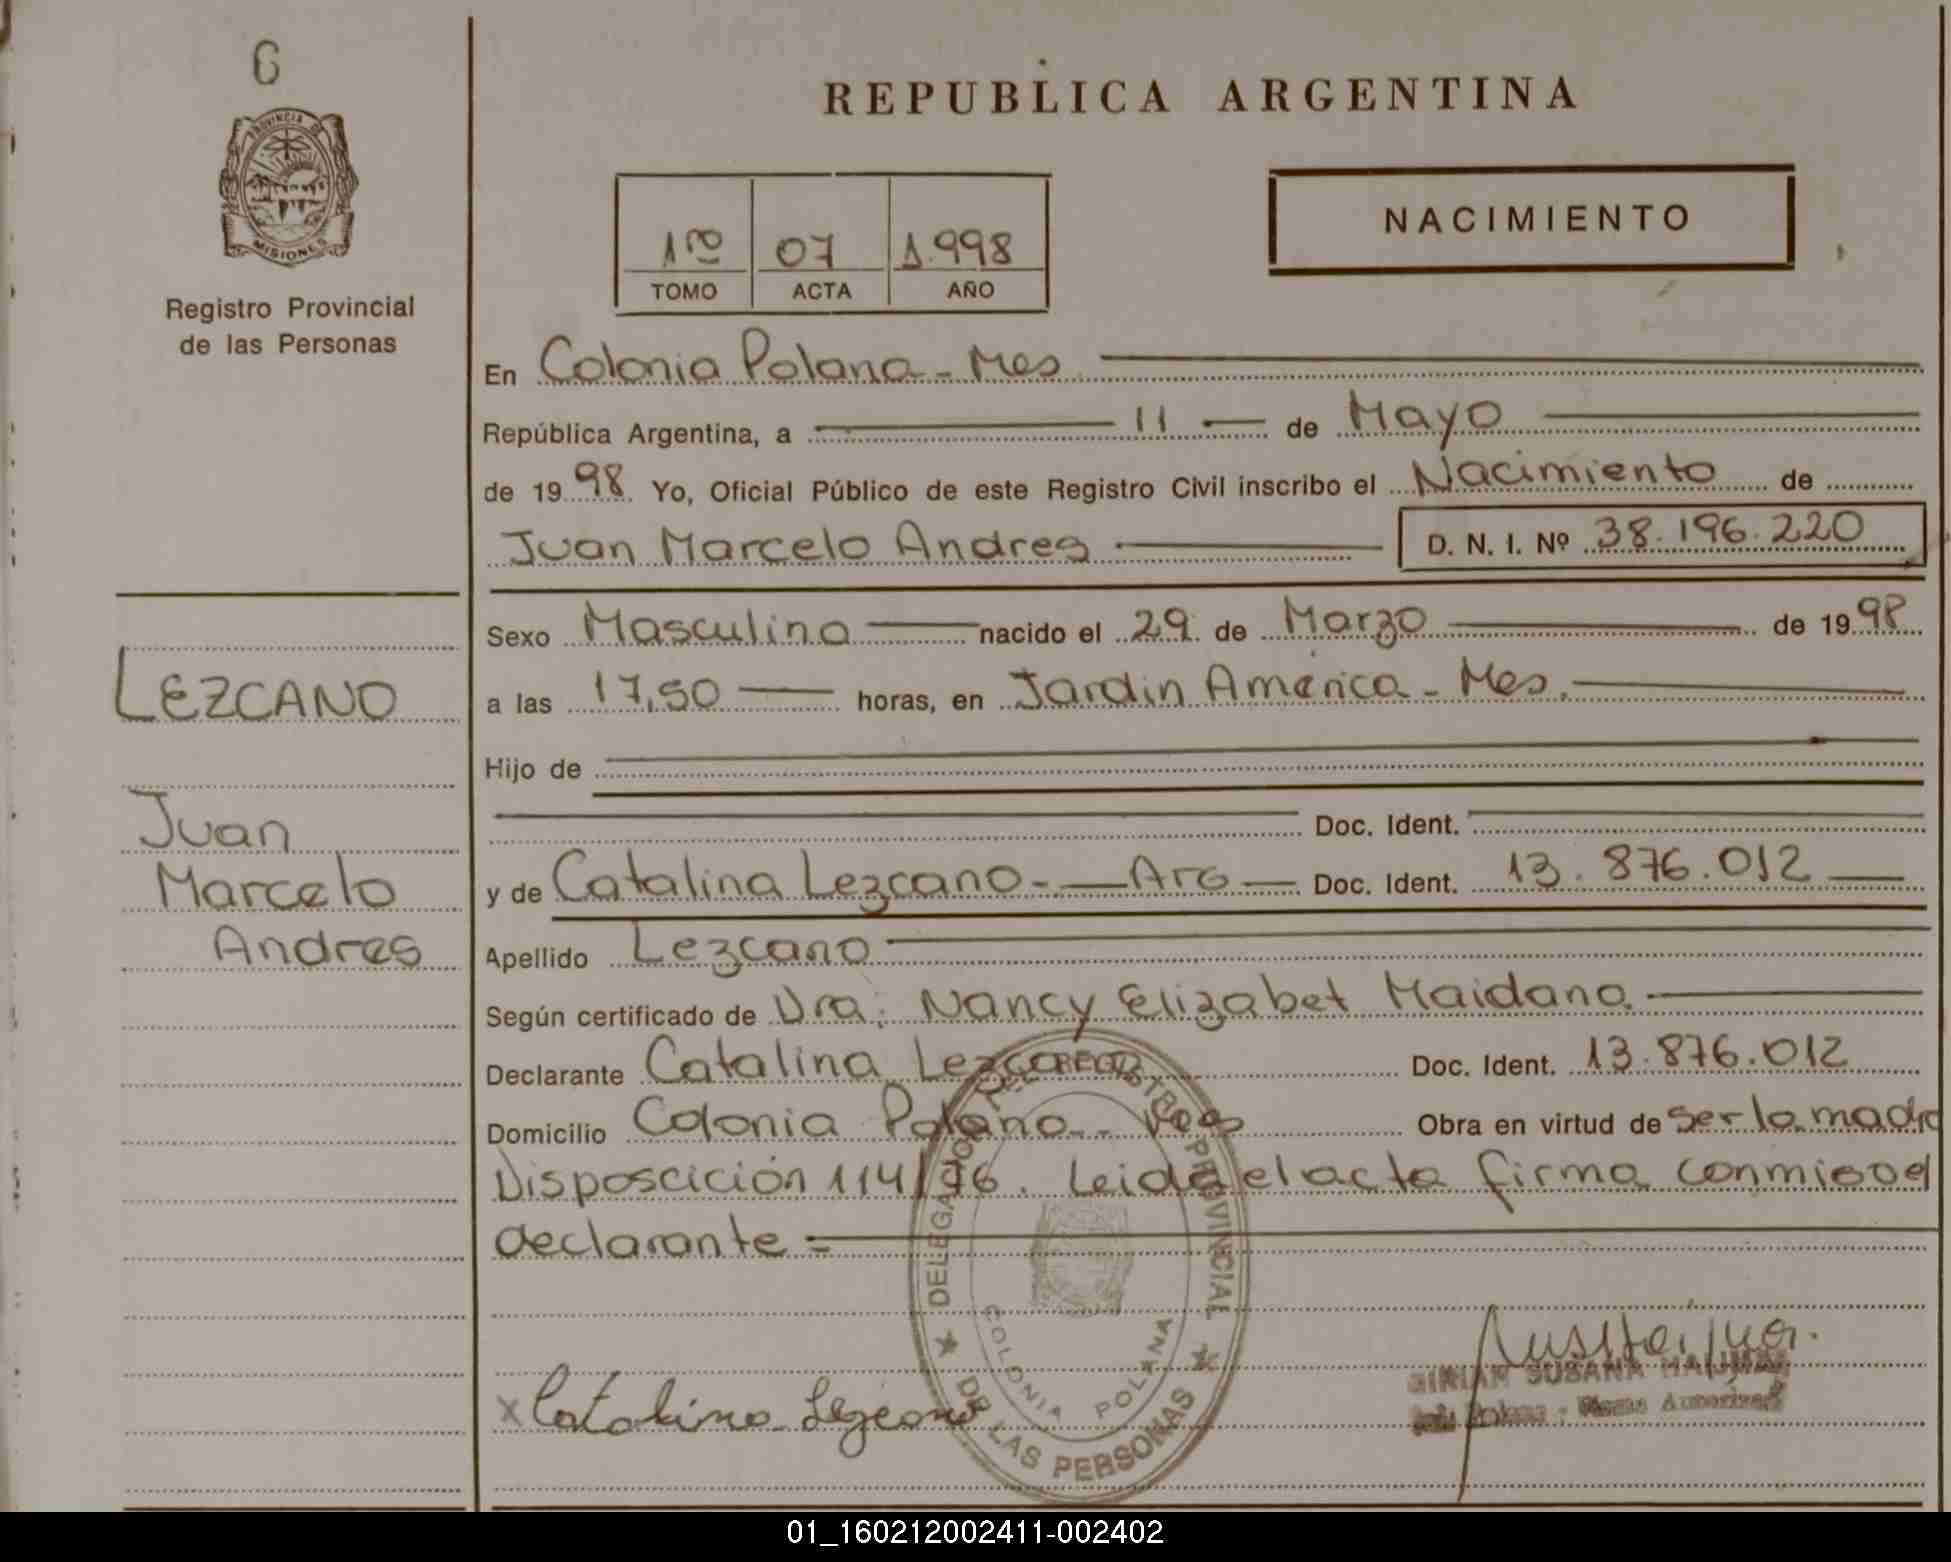 6
PROVINCIA DE
MISIONES
Registro Provincial
de las Personas
LEZCANO
Juan
Marcelo
Andres
REPUBLICA ARGENTINA
1ro 07 1.998
TOMO ACTA AÑO
NACIMIENTO
En Colonia Polana - Mes
República Argentina, a 11 de Mayo
de 1998 Yo, Oficial Público de este Registro Civil inscribo el Nacimiento de
Juan Marcelo Andres D. N. I. Nº 38.196.220
Sexo Masculino nacido el 29 de Marzo de 1998
a las 17,50 horas, en Jardin América - Mes.
Hijo de
Doc. Ident.
y de Catalina Lezcano - Arg Doc. Ident. 13.876.012
Apellido Lezcano
Según certificado de Dra: Nancy Elizabet Maidana
Declarante Catalina Lezcano Doc. Ident. 13.876.012
Domicilio Colonia Polana - Obra en virtud de ser la madre
Disposcición 114/96. Leida el acta firma conmigo el
declarante -
DELEGACION DEL REGISTRO PROVINCIAL
DE LAS PERSONAS
COLONIA POLANA
x Catalina Lezcano
MIRIAN SUSANA
01_160212002411-002402